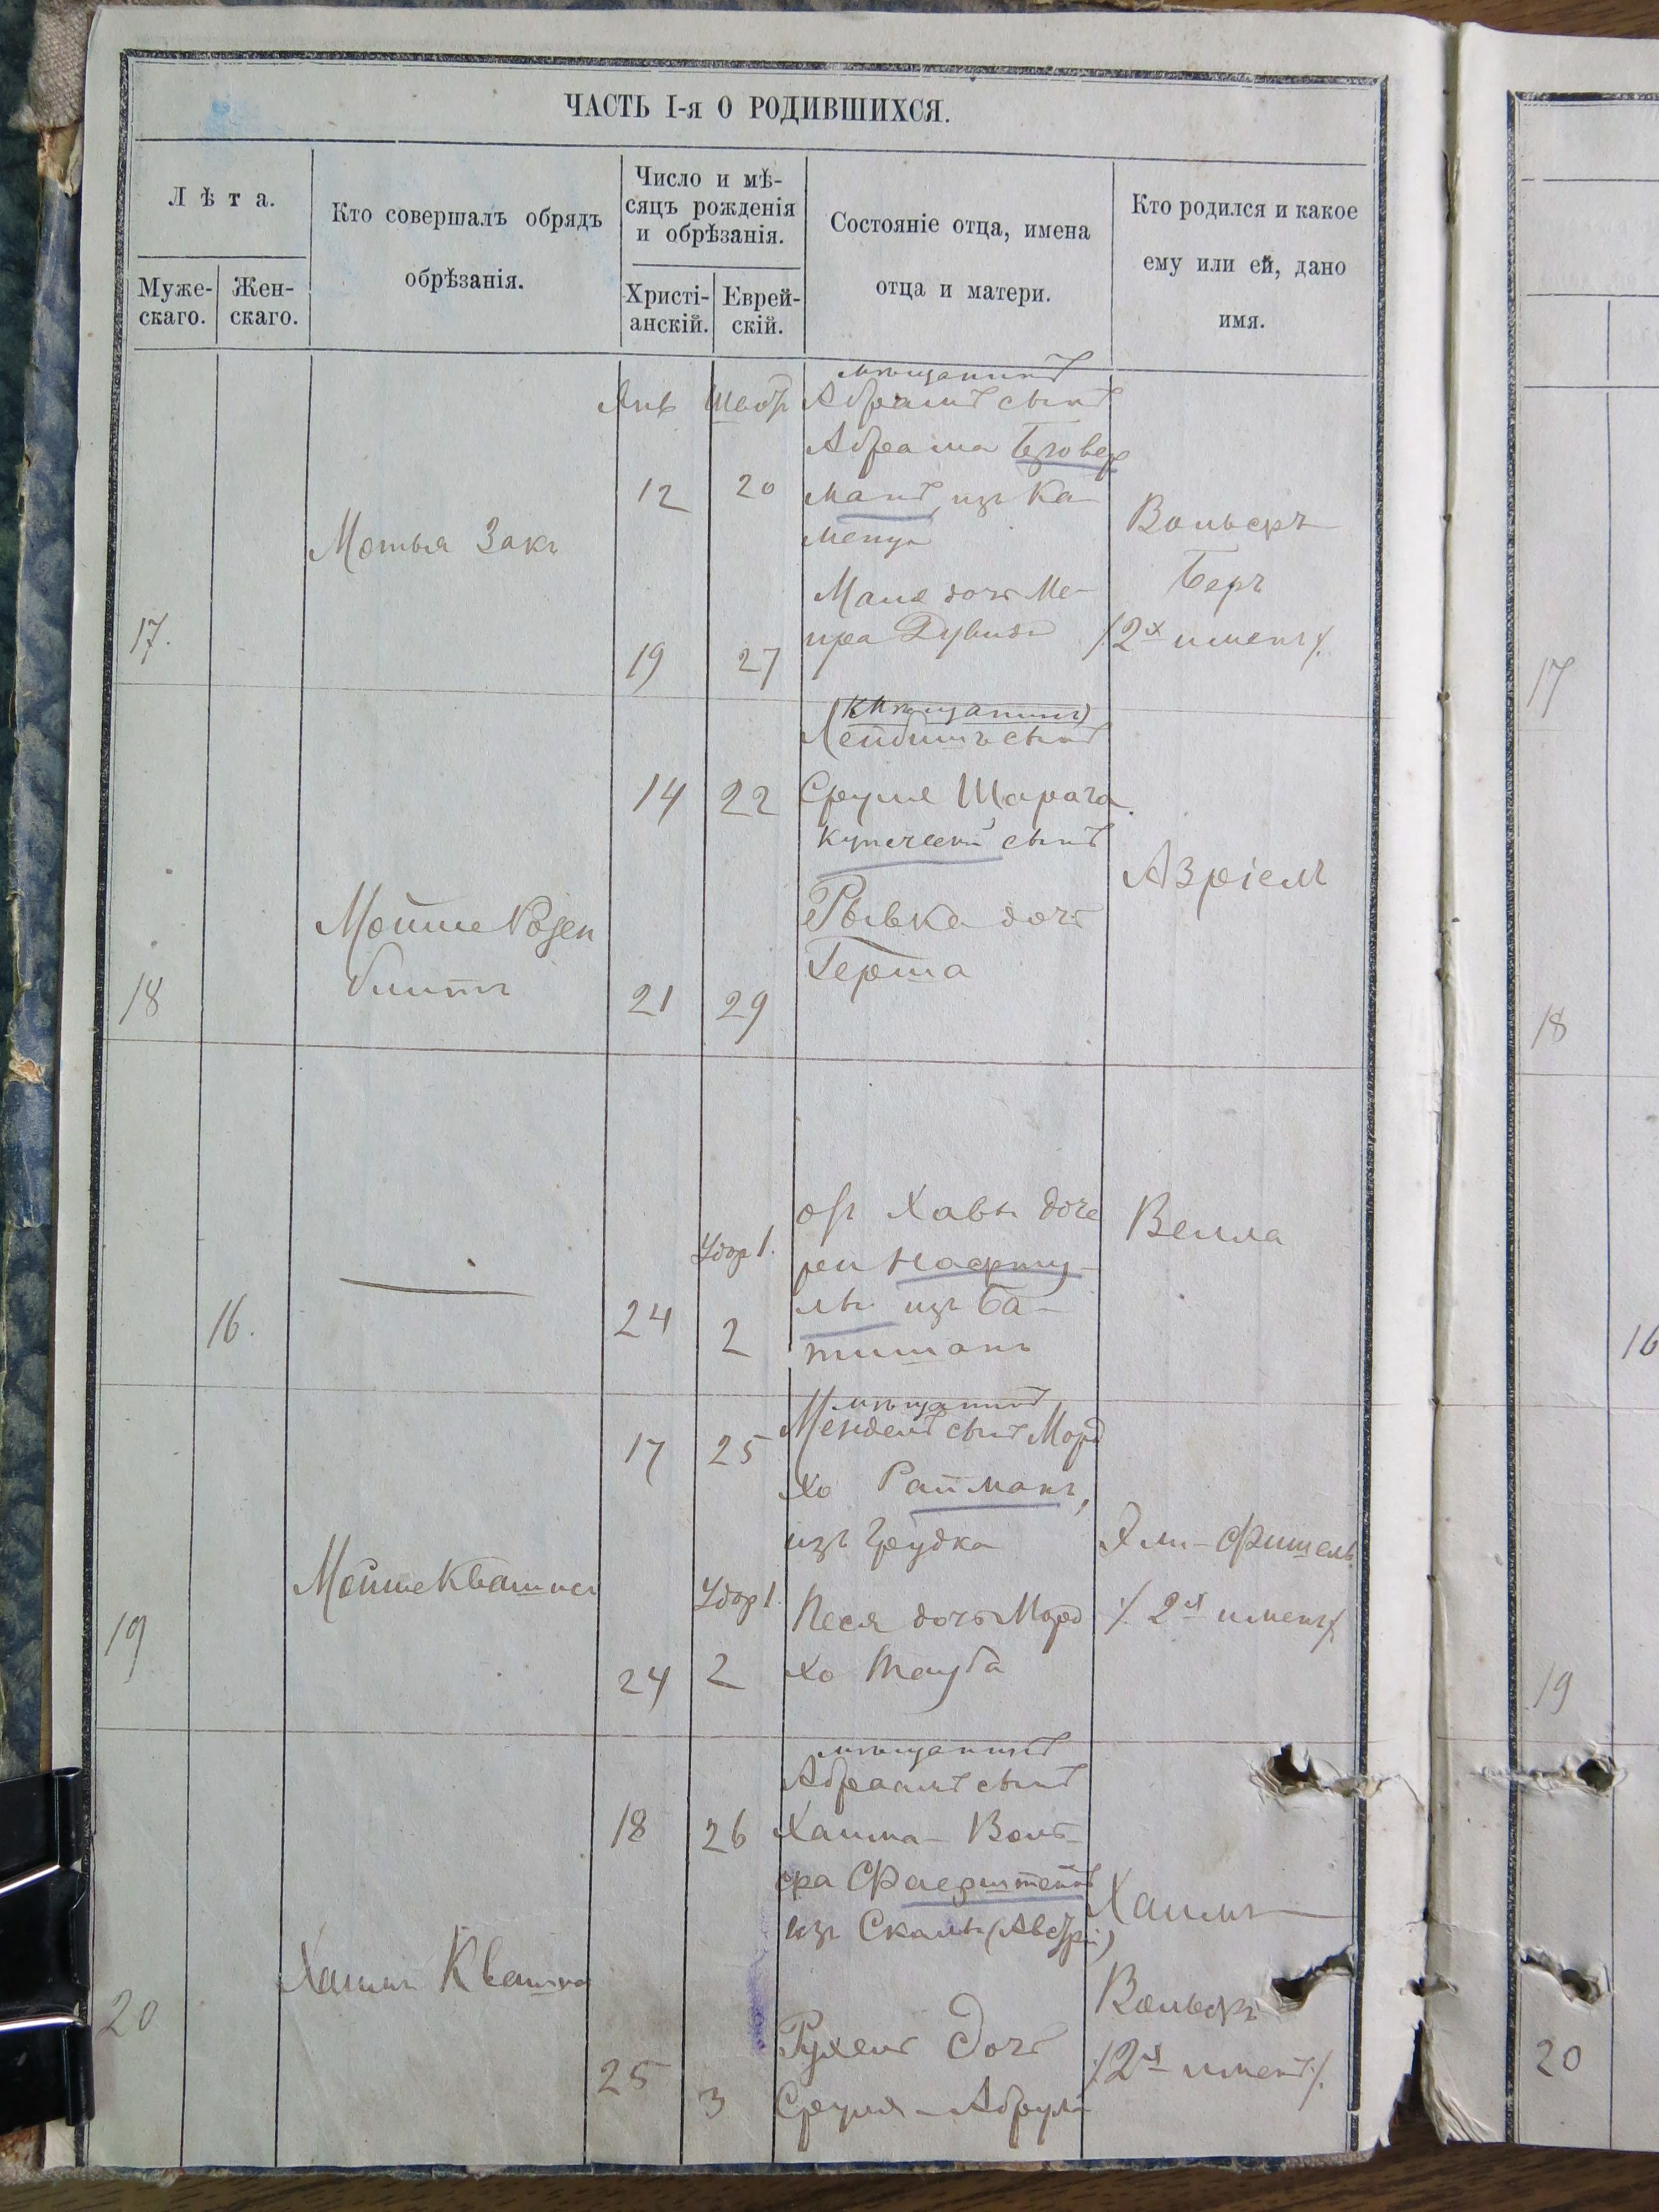 ЧАСТЬ I-я О РОДИВШИХСЯ.
Лѣта.
Муже-
скаго.
Жен-
скаго.
Кто совершалъ обрядъ
обрѣзанія.
Число и мѣ-
сяцъ рожденія
и обрѣзанія.
Христі-
анскій.
Еврей-
скій.
Состояніе отца, имена
отца и матери.
Кто родился и какое
ему или ей, дано
имя.
17.
Мотья Закъ
Янв
12
19
20
27
мѣщанинъ
Абрамъ сынъ
Абрама
манъ, изъ Ка-
менца
дочь Ме-
Вольфъ
Беръ
/2х именъ/.
18
Мойше Розен
блитъ
14
21
22
29
мѣщанинъ)
Лейбишъ сынъ
Сруля
купеческій сынъ
Рывка дочь
Герша
Азріель
16.
24
Удор 1.
2
от Хавы доче
ри Нафту-
лы изъ Ба-
Вейла
19
Мойше Квашна
17
24
25
Удор 1.
2
мѣщанинъ
Мендель сынъ Морд
хо Райманъ,
изъ Грудка
Песя дочь Морд
хо Тауба
Эли-Фишель
/. 2х именъ/.
20
Хаимъ Квашна
18
25
26
3
мѣщанинъ
Абрамъ сынъ
Хаима-Воль-
фа Фаерштейнъ
изъ Скалы (Австрі)
Рухель дочь
Сруля-
Хаимъ
Вольфъ
/2х именъ/.
17
18
16
19
20